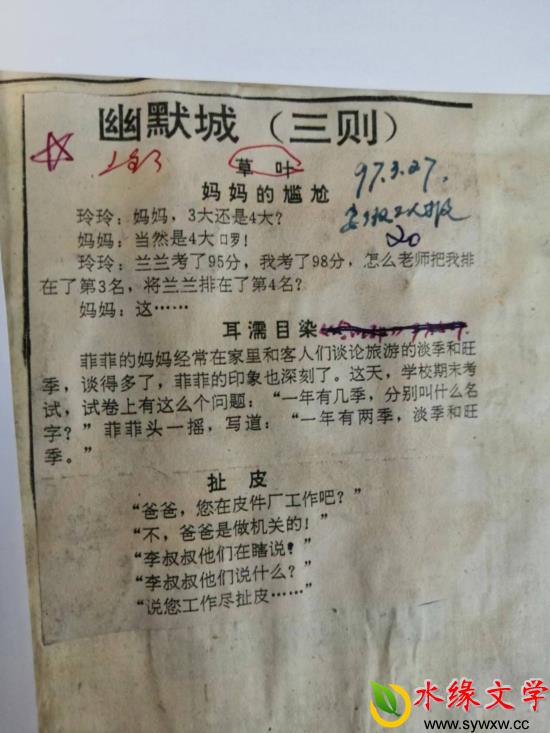 幽默城（三则）
草叶
97.3.27.
妈妈的尴尬
20
玲玲：妈妈，3大还是4大？
妈妈：当然是4大口罗！
玲玲：兰兰考了95分，我考了98分，怎么老师把我排
在了第3名，将兰兰排在了第4名？
妈妈：这……
耳濡目染
菲菲的妈妈经常在家里和客人们谈论旅游的淡季和旺
季，谈得多了，菲菲的印象也深刻了。这天，学校期末考
试，试卷上有这么个问题：“一年有几季，分别叫什么名
字？”菲菲头一摇，写道：“一年有两季，淡季和旺
季。”
扯皮
“爸爸，您在皮件厂工作吧？”
“不，爸爸是做机关的！”
“李叔叔他们在瞎说！”
“李叔叔他们说什么？”
“说您工作尽扯皮……”
水缘文学
www.sywxw.com